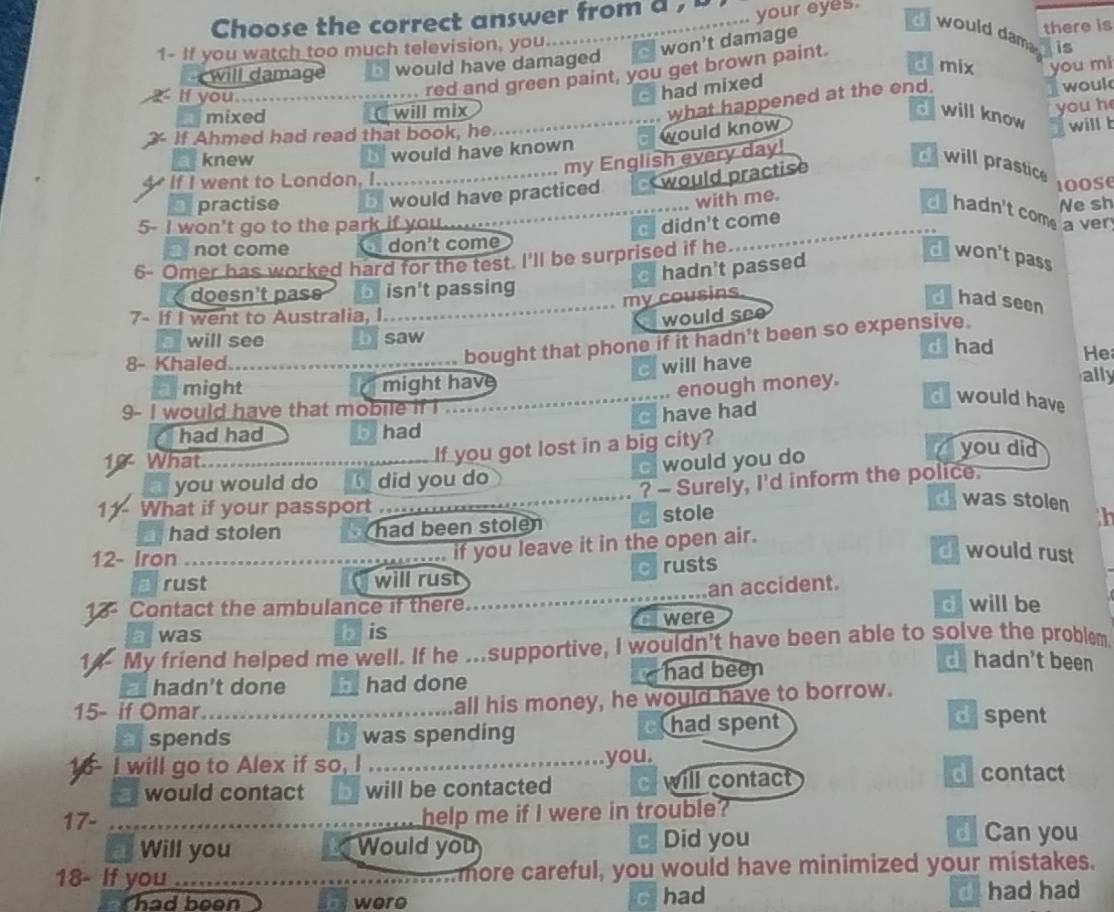 Choose the correct answer from a ,
1- If you watch too much television, you............ your eyes.
will damage b would have damaged c won't damage d would dama
2- If you............ red and green paint, you get brown paint.
a mixed will mix c had mixed d mix
3- If Ahmed had read that book, he............ what happened at the end.
a knew b would have known c would know d will know
4- If I went to London, I............ my English every day!
a practise b would have practiced c would practise d will prastice
5- I won't go to the park if you............ with me.
a not come don't come c didn't come d hadn't come
6- Omer has worked hard for the test. I'll be surprised if he............
doesn't pass b isn't passing c hadn't passed d won't pass
7- If I went to Australia, I............ my cousins.
a will see b saw would see d had seen
8- Khaled............ bought that phone if it hadn't been so expensive.
a might might have c will have d had
9- I would have that mobile if I ............ enough money.
had had b had c have had d would have
10- What............ If you got lost in a big city?
a you would do b did you do c would you do you did
11- What if your passport ............ ? - Surely, I'd inform the police.
a had stolen b had been stolen c stole d was stolen
12- Iron ............ if you leave it in the open air.
a rust will rust c rusts d would rust
13- Contact the ambulance if there............ an accident.
a was b is c were d will be
14- My friend helped me well. If he ...supportive, I wouldn't have been able to solve the problem.
a hadn't done b had done c had been d hadn't been
15- if Omar............ all his money, he would have to borrow.
a spends b was spending c had spent d spent
16- I will go to Alex if so, I ............ you.
a would contact b will be contacted c will contact d contact
17- ............ help me if I were in trouble?
a Will you Would you c Did you d Can you
18- If you ............ more careful, you would have minimized your mistakes.
a had been b were c had d had had
there is
is
you mi
would
you h
will b
loose
Ne sh
a ver
Hea
ally